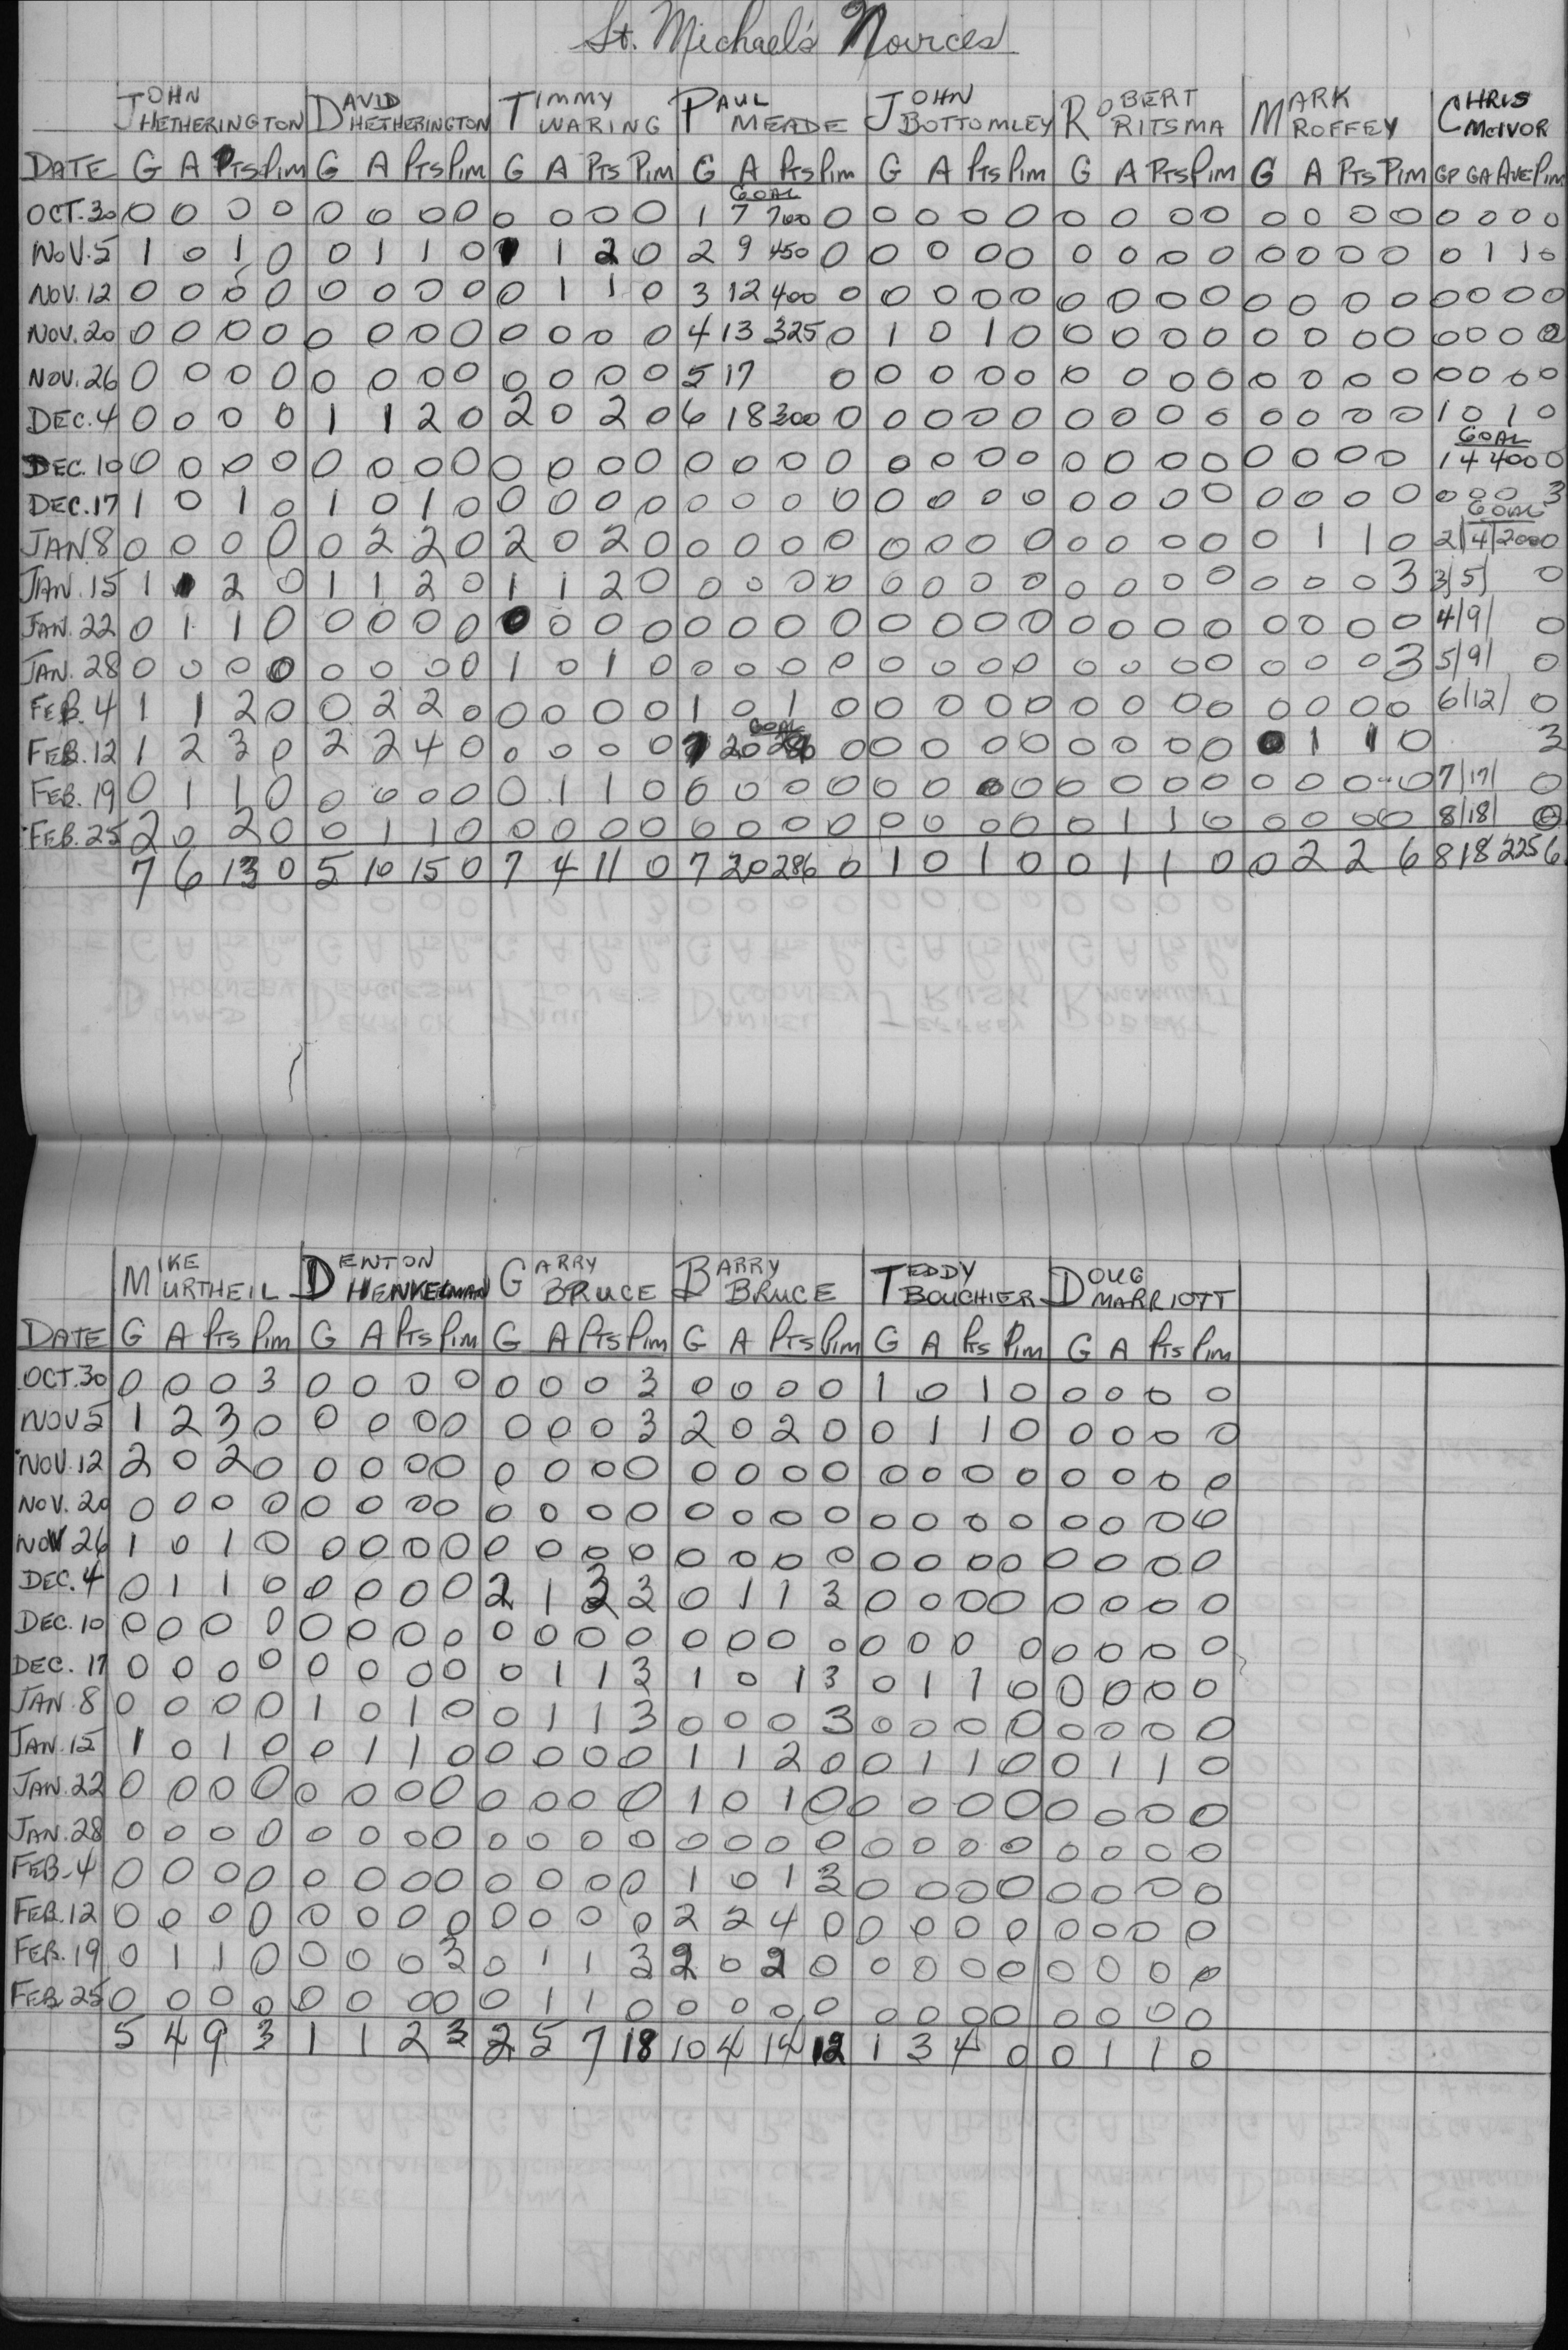 St. Michael's Novices
JOHN HETHERINGTON DAVID HETHERINGTON TIMMY WARING PAUL MEADE JOHN BOTTOMLEY ROBERT RITSMA MARK ROFFEY CHRIS McIVOR
DATE G A Pts Pim G A Pts Pim G A Pts Pim G A Pts Pim G A Pts Pim G A Pts Pim G A Pts Pim GP GA Ave Pim
GOAL
OCT. 30 0 0 0 0 0 0 0 0 0 0 0 0 1 7 700 0 0 0 0 0 0 0 0 0 0 0 0 0 0 0 0 0
NOV. 5 1 0 1 0 0 1 1 0 1 1 2 0 2 9 450 0 0 0 0 0 0 0 0 0 0 0 0 0 0 1 1 0
NOV. 12 0 0 0 0 0 0 0 0 0 1 1 0 3 12 400 0 0 0 0 0 0 0 0 0 0 0 0 0 0 0 0 0
NOV. 20 0 0 0 0 0 0 0 0 0 0 0 0 4 13 325 0 1 0 1 0 0 0 0 0 0 0 0 0 0 0 0 0
NOV. 26 0 0 0 0 0 0 0 0 0 0 0 0 5 17 0 0 0 0 0 0 0 0 0 0 0 0 0 0 0 0 0
DEC. 4 0 0 0 0 1 1 2 0 2 0 2 0 6 18 300 0 0 0 0 0 0 0 0 0 0 0 0 0 1 0 1 0
GOAL
DEC. 10 0 0 0 0 0 0 0 0 0 0 0 0 0 0 0 0 0 0 0 0 0 0 0 0 0 0 0 0 1 4 400 0
DEC. 17 1 0 1 0 1 0 1 0 0 0 0 0 0 0 0 0 0 0 0 0 0 0 0 0 0 0 0 0 0 0 0 3
GOAL
JAN 8 0 0 0 0 0 2 2 0 2 0 2 0 0 0 0 0 0 0 0 0 0 0 0 0 0 1 1 0 2/4/200 0
JAN. 15 1 1 2 0 1 1 2 0 1 1 2 0 0 0 0 0 0 0 0 0 0 0 0 0 0 0 0 3 3/5/ 0
JAN. 22 0 1 1 0 0 0 0 0 0 0 0 0 0 0 0 0 0 0 0 0 0 0 0 0 0 0 0 0 4/9/ 0
JAN. 28 0 0 0 0 0 0 0 0 1 0 1 0 0 0 0 0 0 0 0 0 0 0 0 0 0 0 0 3 5/9/ 0
FEB. 4 1 1 2 0 0 2 2 0 0 0 0 0 1 0 1 0 0 0 0 0 0 0 0 0 0 0 0 0 6/12/ 0
GOAL
FEB. 12 1 2 3 0 2 2 4 0 0 0 0 0 7 20 286 0 0 0 0 0 0 0 0 0 0 1 1 0 3
FEB. 19 0 1 1 0 0 0 0 0 0 1 1 0 0 0 0 0 0 0 0 0 0 0 0 0 0 0 0 0 7/17/ 0
FEB. 25 2 0 2 0 0 1 1 0 0 0 0 0 0 0 0 0 0 0 0 0 0 1 1 0 0 0 0 0 8/18/ 0
7 6 13 0 5 10 15 0 7 4 11 0 7 20 286 0 1 0 1 0 0 1 1 0 0 2 2 6 8 18 225 6
MIKE MURTHEIL DENTON HENKELMAN GARRY BRUCE BARRY BRUCE TEDDY BOUCHIER DOUG MARRIOTT
DATE G A Pts Pim G A Pts Pim G A Pts Pim G A Pts Pim G A Pts Pim G A Pts Pim
OCT. 30 0 0 0 3 0 0 0 0 0 0 0 3 0 0 0 0 1 0 1 0 0 0 0 0
NOV 5 1 2 3 0 0 0 0 0 0 0 0 3 2 0 2 0 0 1 1 0 0 0 0 0
NOV. 12 2 0 2 0 0 0 0 0 0 0 0 0 0 0 0 0 0 0 0 0 0 0 0 0
NOV. 20 0 0 0 0 0 0 0 0 0 0 0 0 0 0 0 0 0 0 0 0 0 0 0 0
NOV 26 1 0 1 0 0 0 0 0 0 0 0 0 0 0 0 0 0 0 0 0 0 0 0 0
DEC. 4 0 1 1 0 0 0 0 0 2 1 3 3 0 1 1 3 0 0 0 0 0 0 0 0
DEC. 10 0 0 0 0 0 0 0 0 0 0 0 0 0 0 0 0 0 0 0 0 0 0 0 0
DEC. 17 0 0 0 0 0 0 0 0 0 1 1 3 1 0 1 3 0 1 1 0 0 0 0 0
JAN. 8 0 0 0 0 1 0 1 0 0 1 1 3 0 0 0 3 0 0 0 0 0 0 0 0
JAN. 15 1 0 1 0 0 1 1 0 0 0 0 0 1 1 2 0 0 1 1 0 0 1 1 0
JAN. 22 0 0 0 0 0 0 0 0 0 0 0 0 1 0 1 0 0 0 0 0 0 0 0 0
JAN. 28 0 0 0 0 0 0 0 0 0 0 0 0 0 0 0 0 0 0 0 0 0 0 0 0
FEB. 4 0 0 0 0 0 0 0 0 0 0 0 0 1 0 1 3 0 0 0 0 0 0 0 0
FEB. 12 0 0 0 0 0 0 0 0 0 0 0 0 2 2 4 0 0 0 0 0 0 0 0 0
FEB. 19 0 1 1 0 0 0 0 3 0 1 1 3 2 0 2 0 0 0 0 0 0 0 0 0
FEB. 25 0 0 0 0 0 0 0 0 0 1 1 0 0 0 0 0 0 0 0 0 0 0 0 0
5 4 9 3 1 1 2 3 2 5 7 18 10 4 14 12 1 3 4 0 0 1 1 0